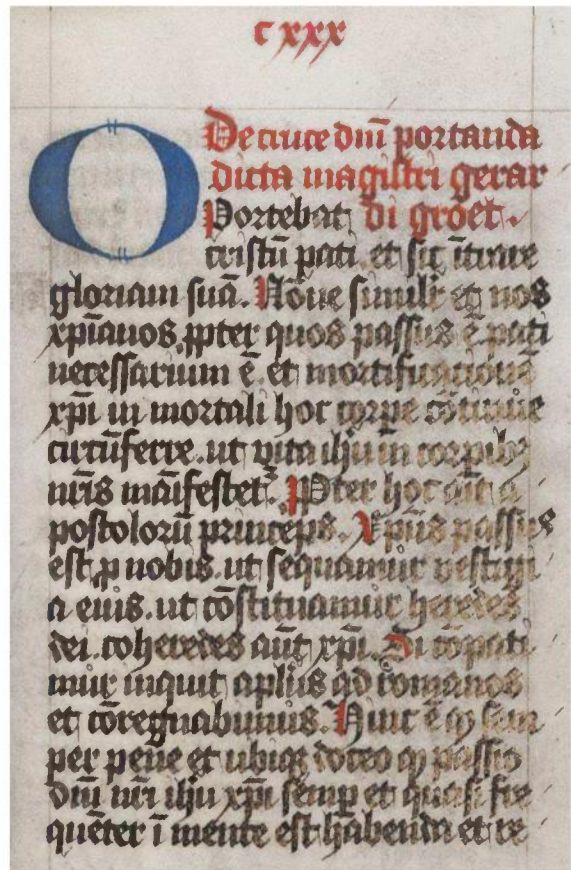 cxxx
De cruce dm̄ portanda
dicta magistri gerar
di groet.
Oportebat
cristū pati. et sic ītrare
gloriam suā. Nōne simili et nos
xpīanos. ꝓpter quos passus ē. pati
necessarium ē. et mortificationē
xpī in mortali hoc corpe cōtinue
circūferre. ut vita ihu in corpibꝫ
nr̄is māifestetᷣ. Ppter hoc aūt a
postolorū princeps. Xpūs passus
est ꝓ nobis. ut sequamur vestigi
a eius. ut cōstituamur heredes
dei. coheredes aūt xpī. Si cōpati
mur inquit aplūs ad romanos
et cōregnabimus. Hinc ē ꝙ sem
per pene et ubiqꝫ doceo ꝙ passio
dm̄ nr̄i ihu xpī semꝑ et quasi fre
quēter ī mente est habenda et re